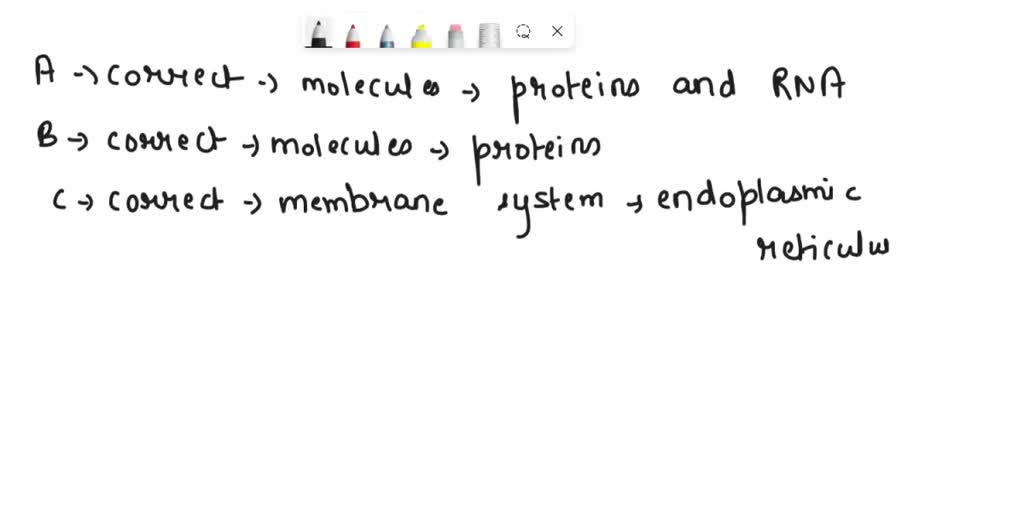 A → correct → molecules → proteins and RNA
B → correct → molecules → proteins
C → correct → membrane system → endoplasmic
reticulu